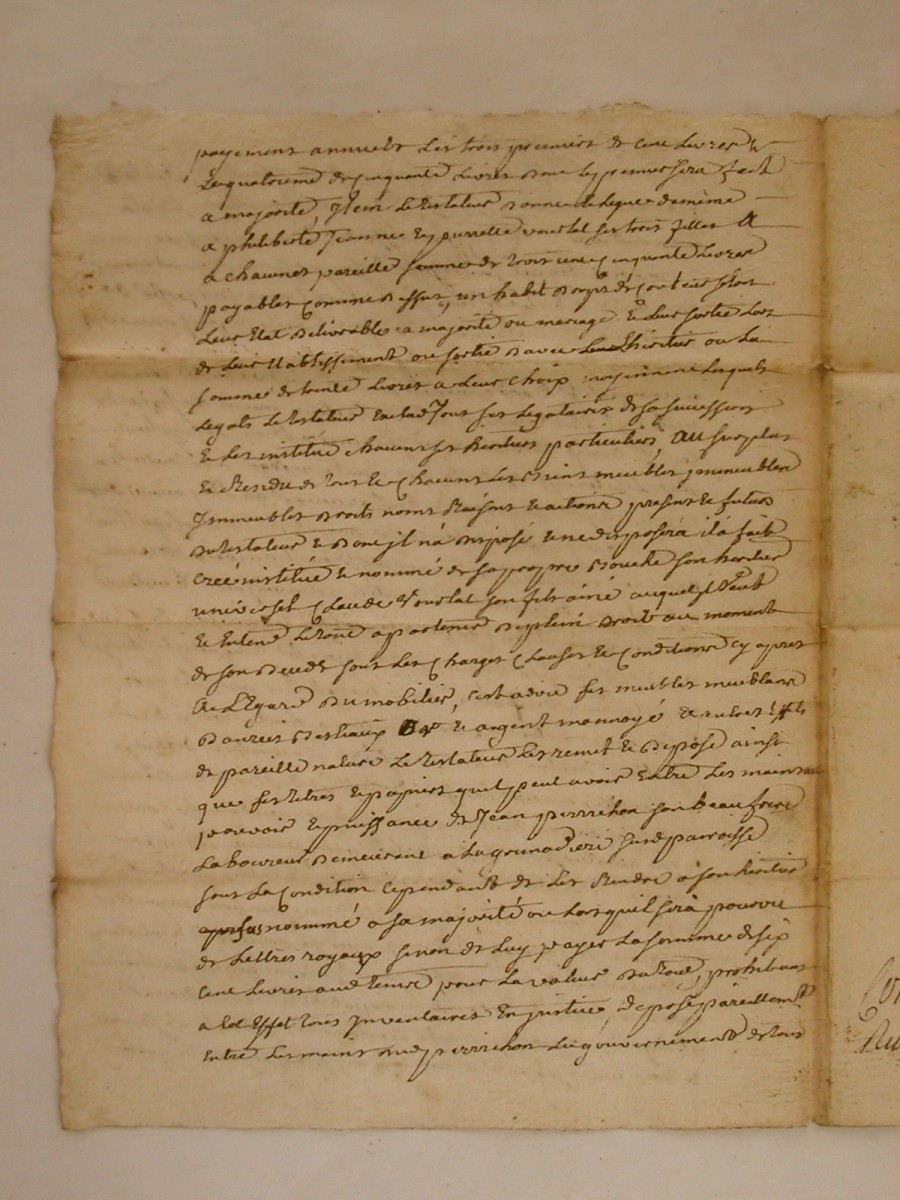 payement annuels les trois premiers de cent livres &
le quatrieme de cinquante livres dont le premier sera fait
a majorité, Item le testateur donne et legue de même
a philiberte Jeanne et pierrette vouclat ses trois filles et
a chacunes pareille somme de trois cent cinquante livres
payables comme dessus, un habit de couleur selon
leur Etat delivrable a majorité ou mariage et leur sortie lors
de leur Etablissement ou sortie d'avec leur heritier ou la
somme de trente livres a leur choix moyennant lesquels
legats le testateur exclud tous ses legataires de sa succession
et les institue chacuns ses heritiers particuliers, au surplus
et Residu de tous et chacuns les biens meubles immeubles
Immeubles droits noms Raisons et actions presents et futurs
du testateur et dont il n'a disposé et ne disposera il a fait
creé institué et nommé de sa propre bouche son heritier
universel Claude vouclat son fils ainé auquel il veut
et Entend le tout apartenir de plein droit au moment
de son deceds sous les charges clauses et conditions cy apres
a l'Egard du mobilier, c'est a dire ses meubles meublans
danrées bestiaux et argent monnoyé et autres effets
de pareille nature le testateur les remet et depose ainsi
que ses titres et papiers qu'il peut avoir Entre les mains
pouvoir et puissance de Jean perrichon son beau frere
laboureur demeurant a la susd. paroisse
sous la condition cependant de les Rendre a son heritier
nommé a sa majorité ou lorsqu'il sera pourvu
de lettres royaux sinon de luy payer la somme de six
cent livres aud. tems pour la valeur du tout, prohibant
a cet Effet tous Inventaires En justice, depose pareillement
Entre les mains dud. perrichon le gouvernement de tous